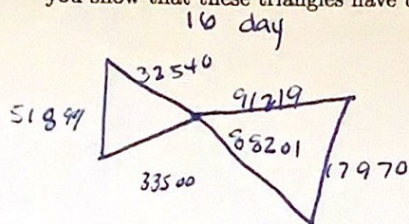 you show that these triangles have
16 day
32540
91219
51897
88201
17970
33500